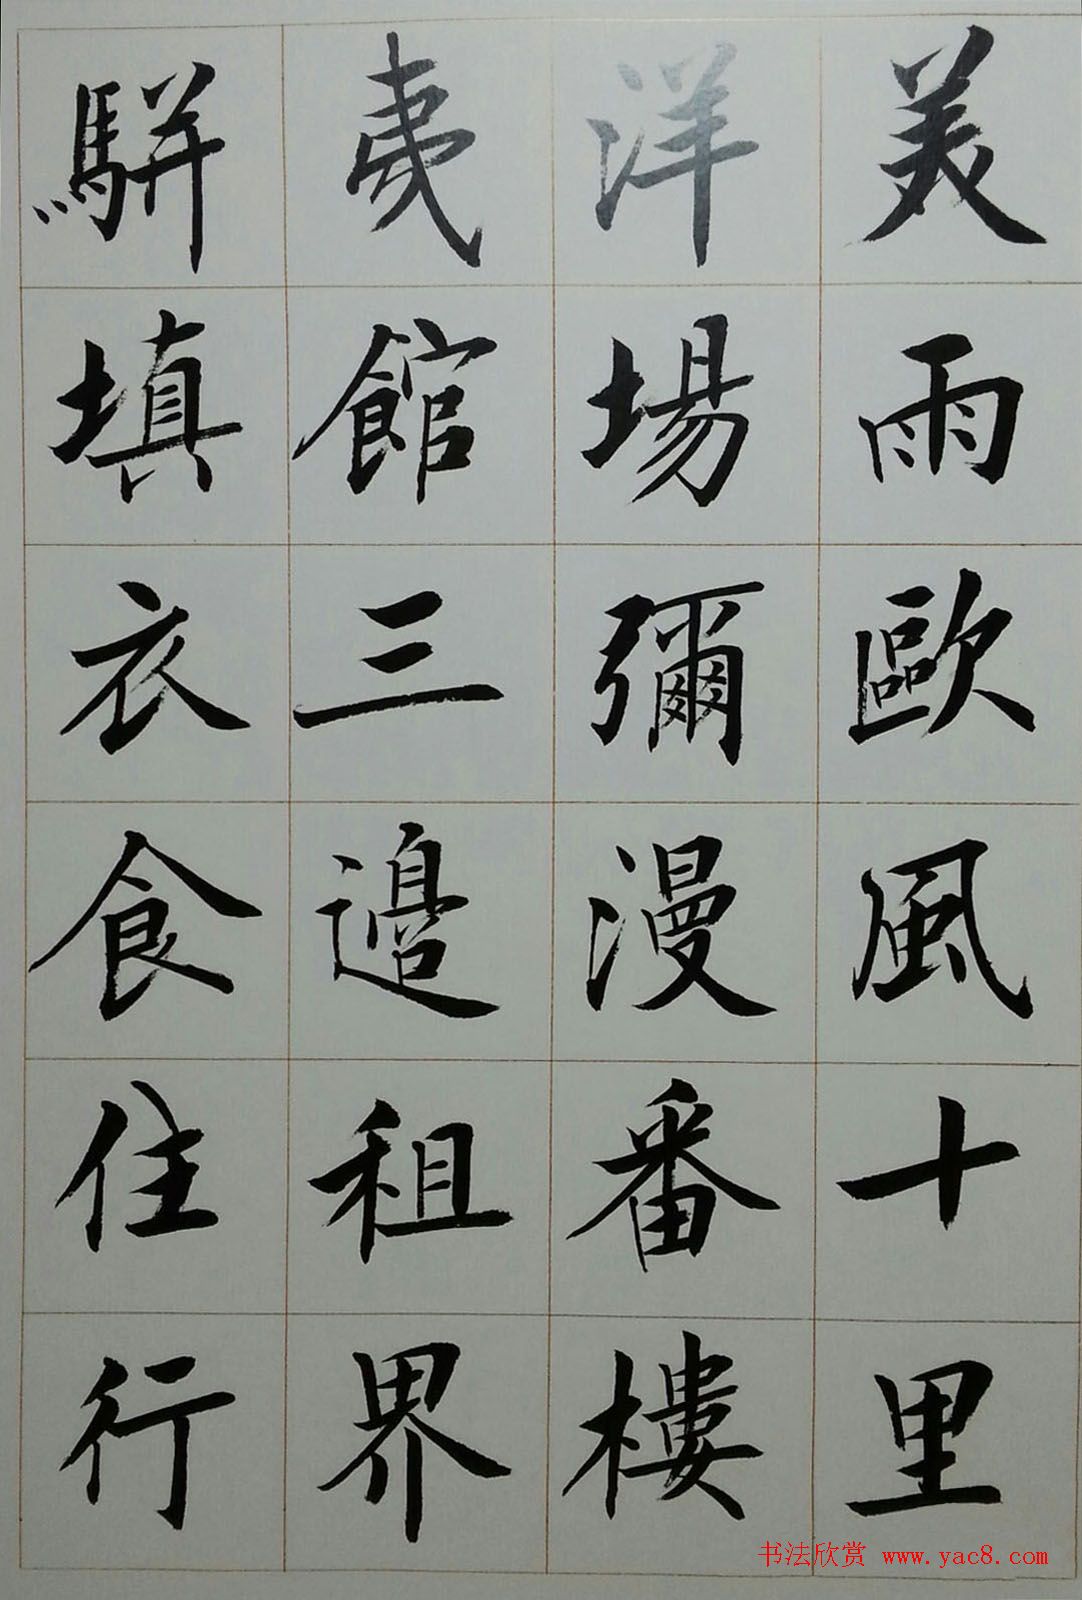 美雨歐風十里
洋場彌漫番樓
夷館三邊租界
駢填衣食住行
书法欣赏 www.yac8.com